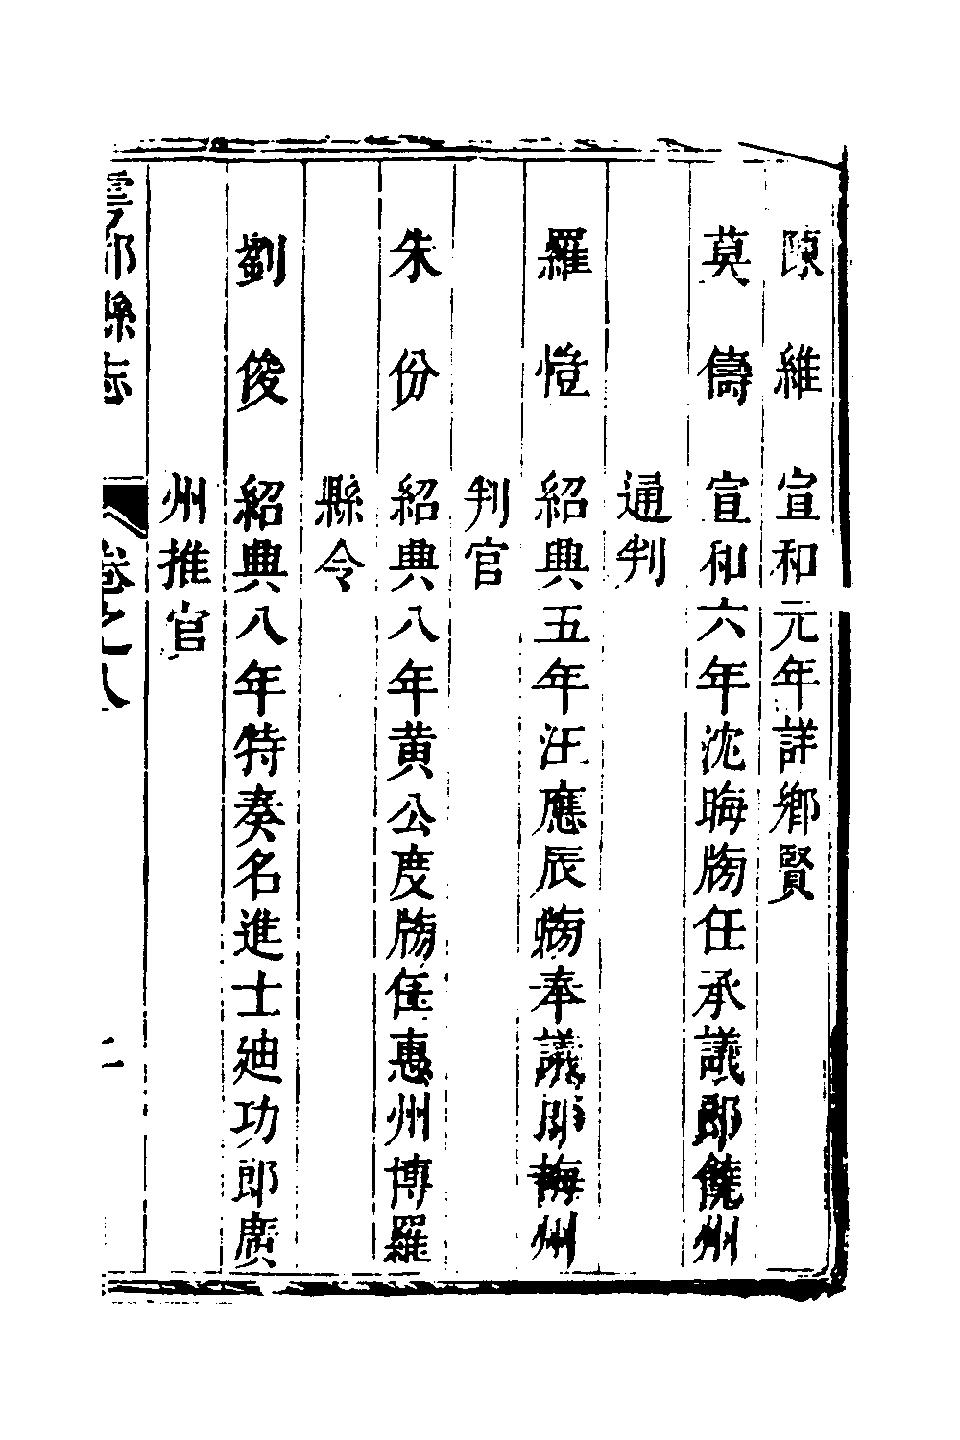 陳　維　宣和元年詳鄉賢
莫　儔　宣和六年沈晦牓任承議郎饒州
通判
羅　愷　紹興五年汪應辰牓奉議郎梅州
判官
朱　份　紹興八年黃公度牓任惠州博羅
縣令
劉　俊　紹興八年特奏名進士廸功郎廣
州推官
雩都縣志　卷之八